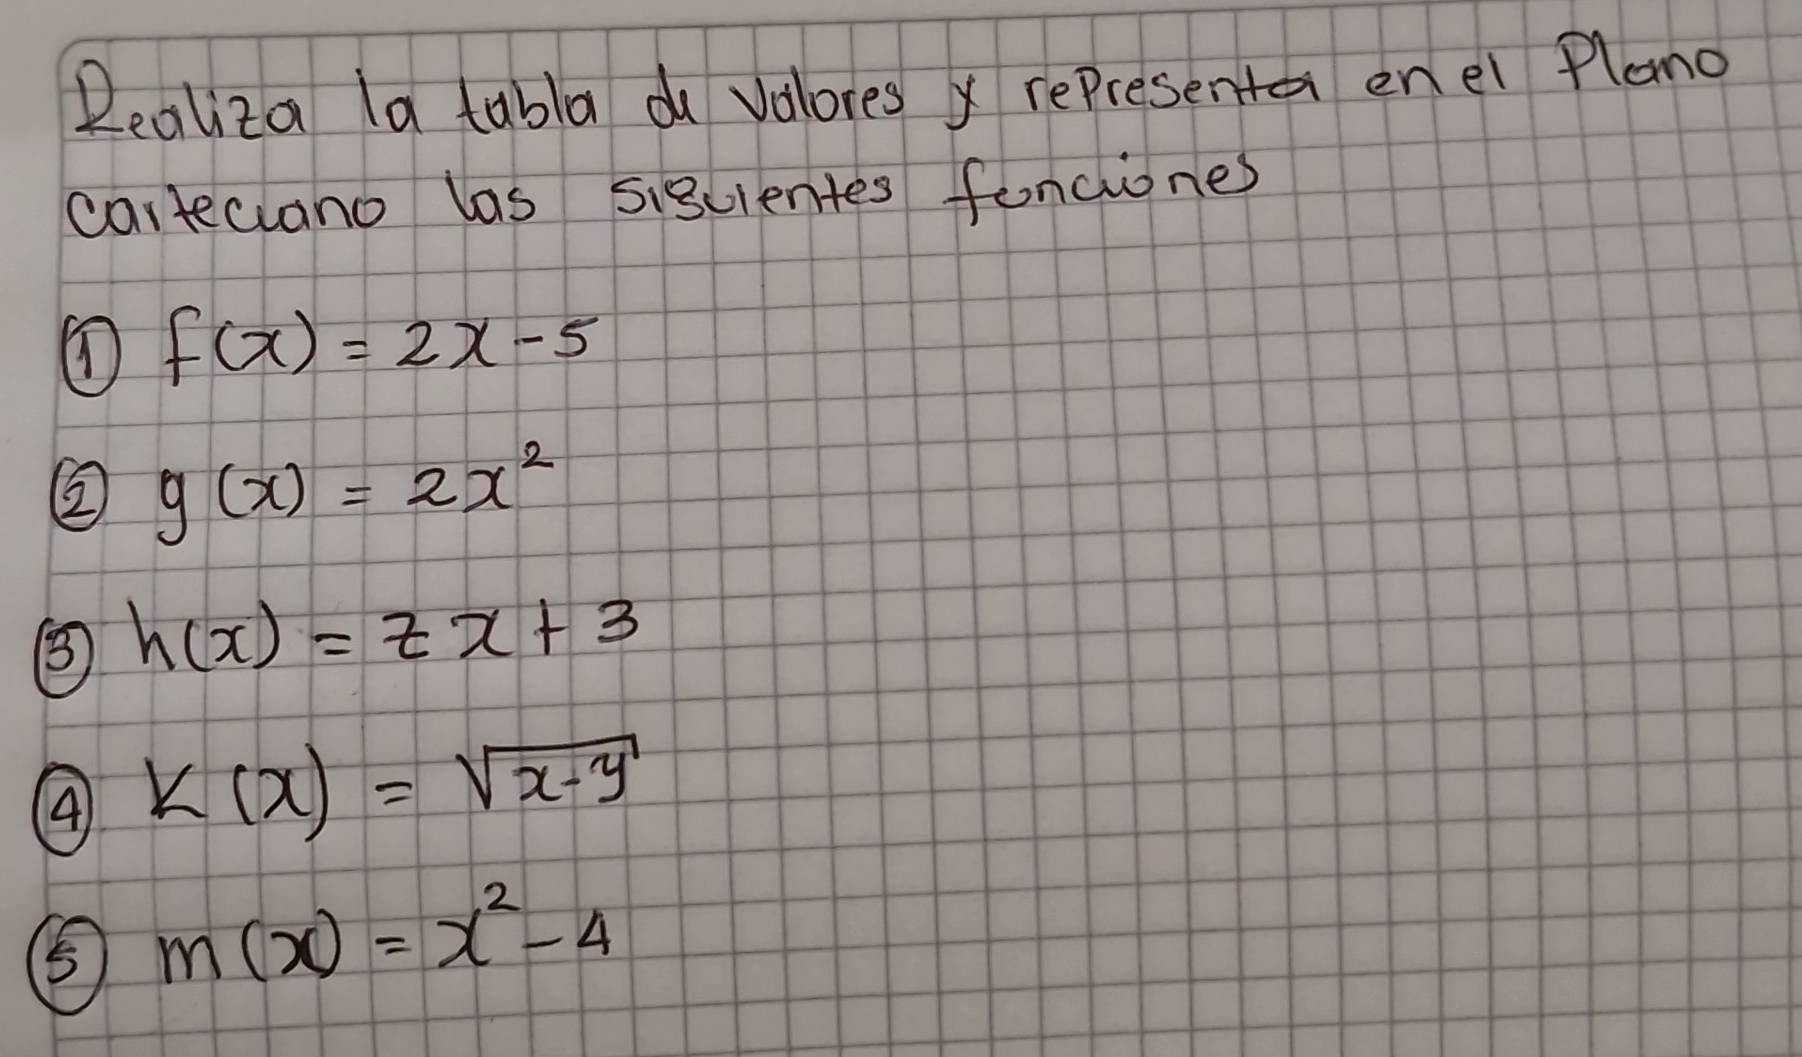 Realiza la tabla de valores y representa en el Plano
carteciano las siguientes funciones
① f(x) = 2x - 5
② g(x) = 2x²
③ h(x) = zx + 3
④ K(x) = √x-y
⑤ m(x) = x² - 4